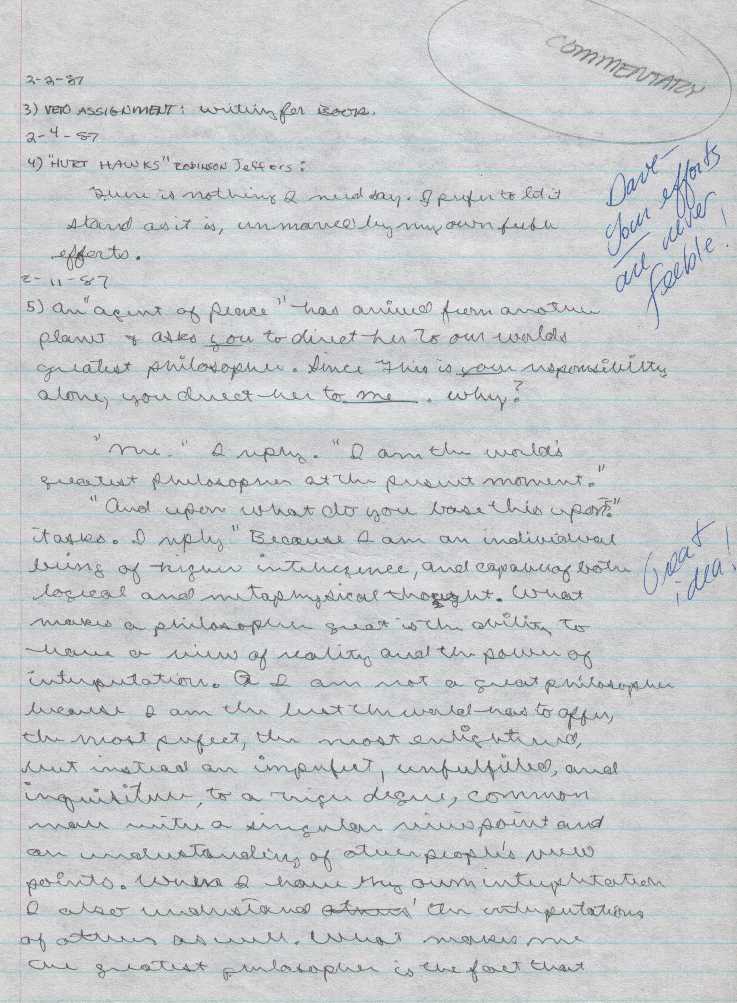 COMMENTARY
2-2-87
3) VETO ASSIGNMENT: writing for BOOK.
2-4-87
4) "HURT HAWKS" ROBINSON Jeffers:
There is nothing I need say. I prefer to let it
stand as it is, unmarred by my own feeble
efforts.
Dave-
Your efforts
are never
feeble!
2-11-87
5) An "agent of peace" has arrived from another
planet & asks you to direct her to our worlds
greatest philosopher. Since this is your responsibility
alone, you direct her to me. Why?
"Me." I reply. "I am the world's
greatest philosopher at the present moment."
"And upon what do you base this upon?"
it asks. I reply "Because I am an individual
being of higher intelligence, and capable of both
logical and metaphysical thought. What
Great
idea!
makes a philosopher great is the ability to
have a view of reality and the power of
interputation. I am not a great philosopher
because I am the best the world has to offer,
the most perfect, the most enlightened,
but instead an imperfect, unfulfilled, and
inquisitive, to a high degree, common
man with a singular viewpoint and
an understanding of other people's view
points. When I have my own interpretation
I also understand others' the interputations
of others as well. What makes me
the greatest philosopher is the fact that